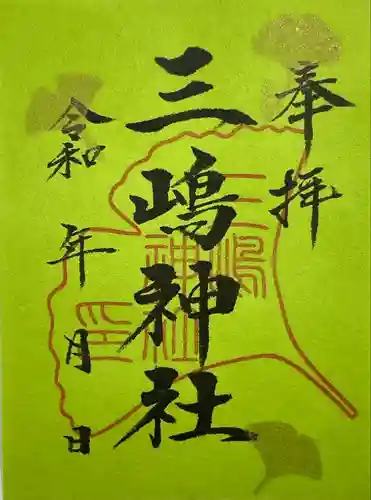 奉拝
三嶋神社
令和 年 月 日
三嶋
神社
印